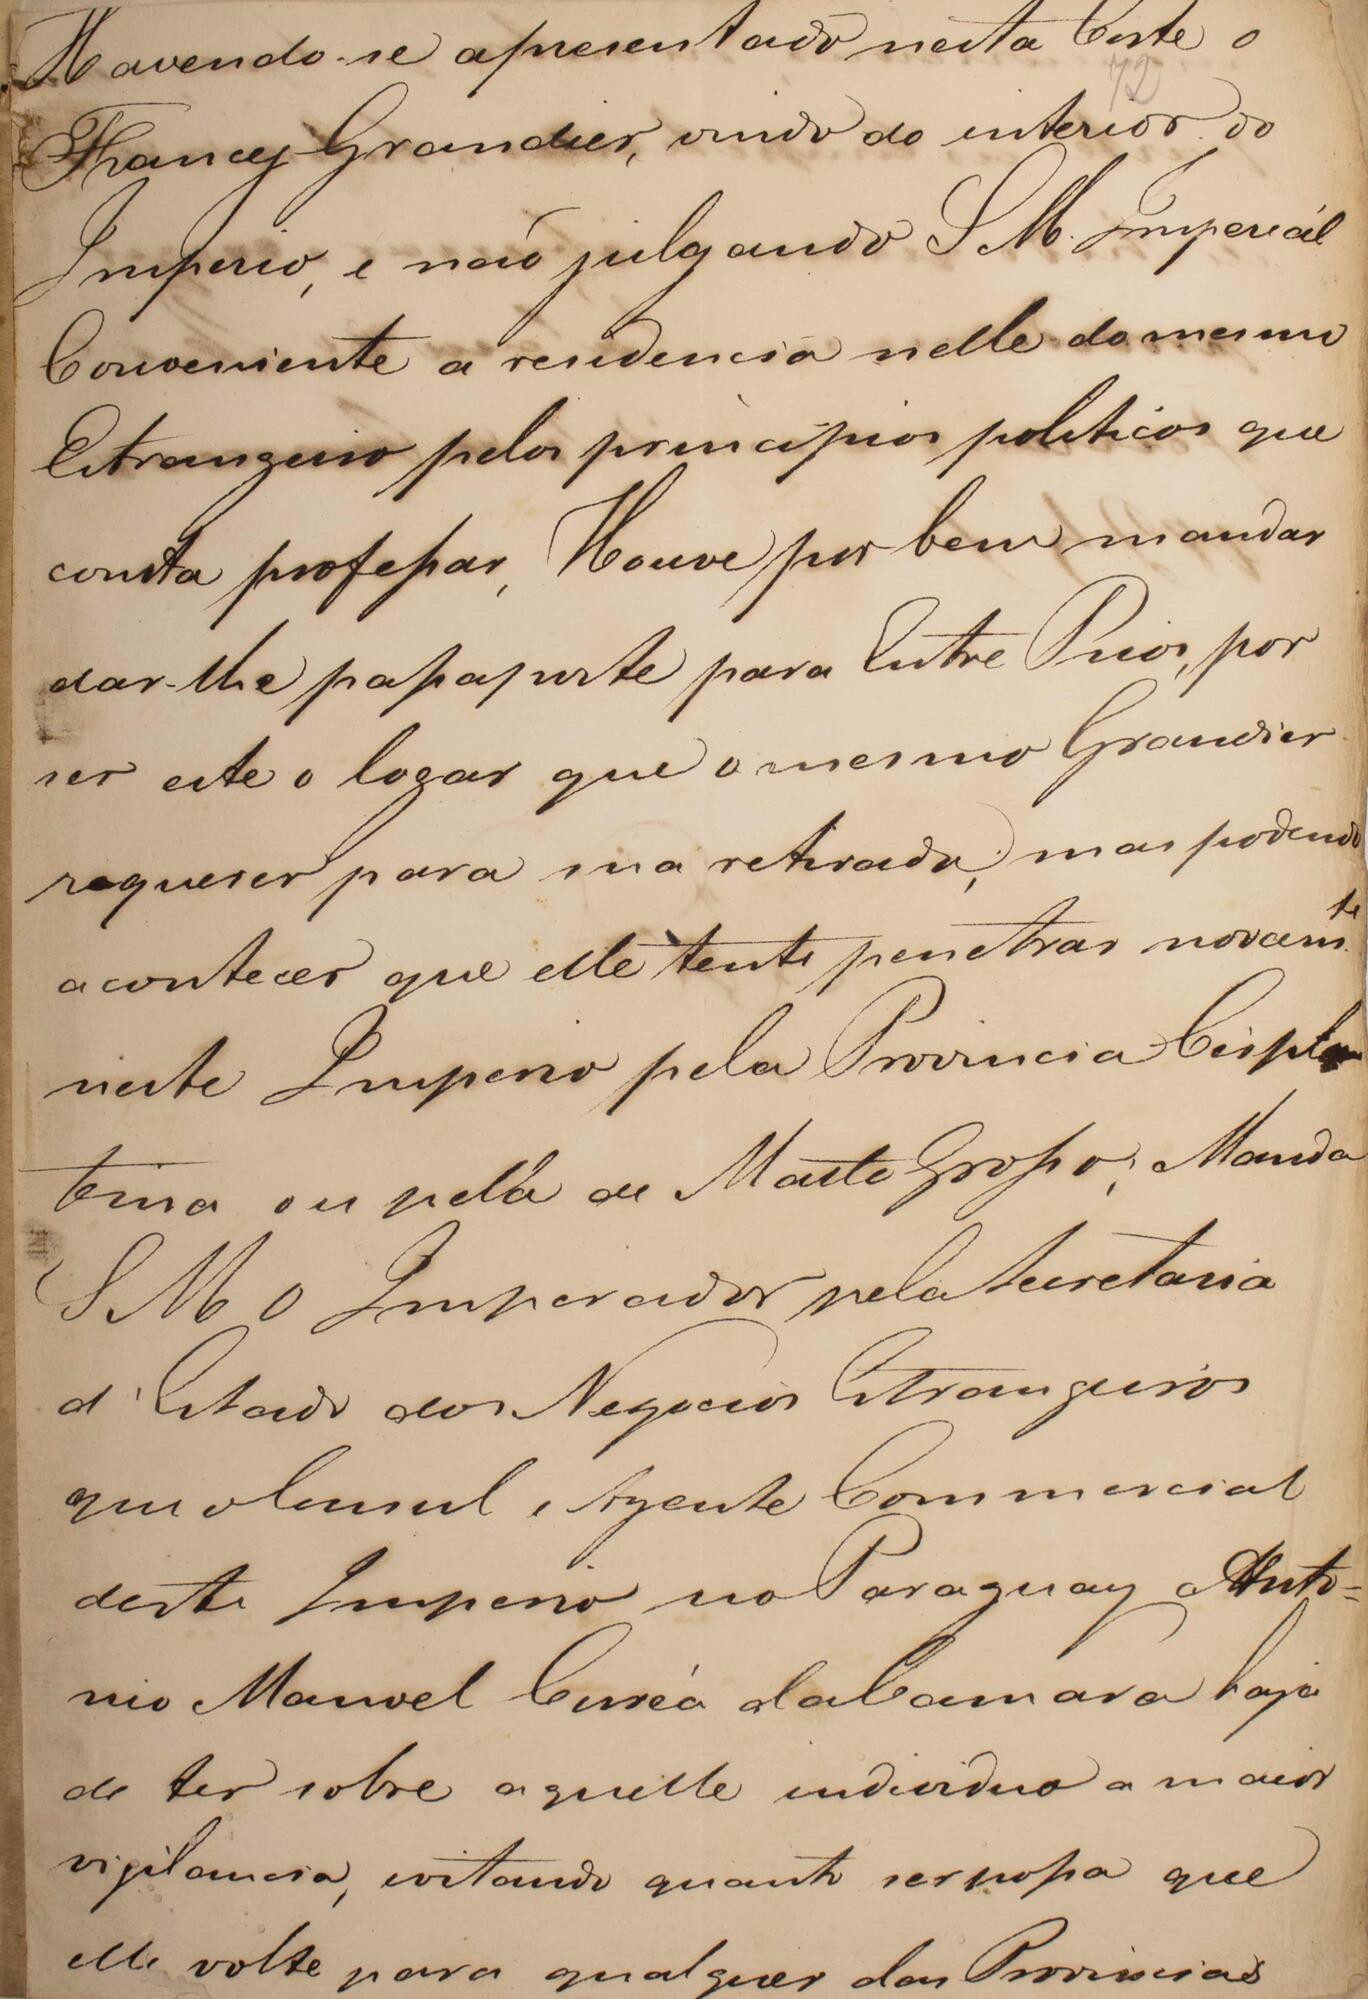 Havendo-se apresentado nesta Corte o
72
Francez Grandier, vindo do interior do
Imperio, e naõ julgando S M. Imperiál
Conveniente a residencia nelle do mesmo
Estrangeiro pelos principios politicos que
consta professar, Houve por bem mandar
dar-lhe passaporte para Entre Rios, por
ser este o logar que o mesmo Grandier
requerer para sua retirada; mas podendo
acontecer que elle tente penetrar novamte
neste Imperio pela Provincia Cispla
tina ou pela de Matto Grosso; Manda
S M O Imperador pela Secretaria
d'Estado dos Negocios Estrangeiros
que o Consul e Agente Commercial
deste Imperio no Paraguay Anto=
nio Manoel Corrêa da Camara haja
de ter sobre aquelle individuo a maior
vigilancia, evitando quanto ser possa que
elle volte para qualquer das Provincias